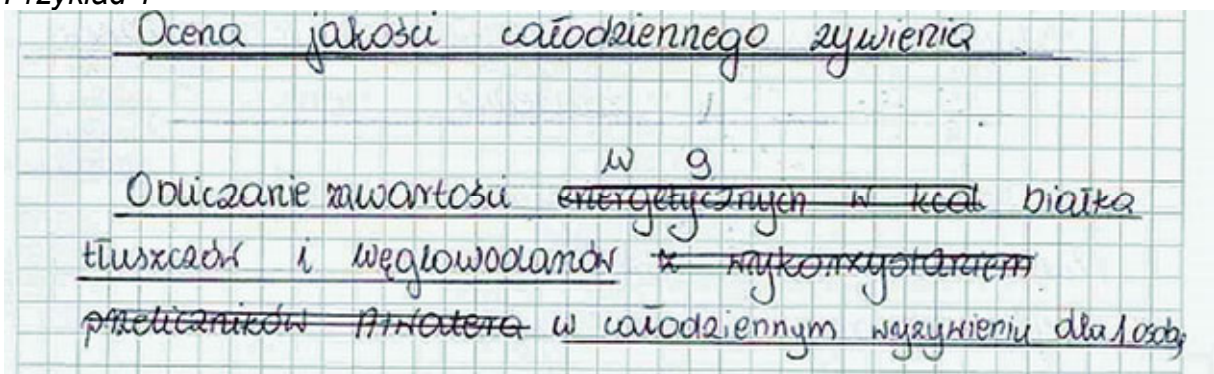 Przykład 1
Ocena jakości całodziennego żywienia
w g
Obliczanie zawartości energetycznych w kcal białka
tłuszczów i węglowodanów z wykorzystaniem
przeliczników Atwatera w całodziennym wyżywieniu dla 1 osoby